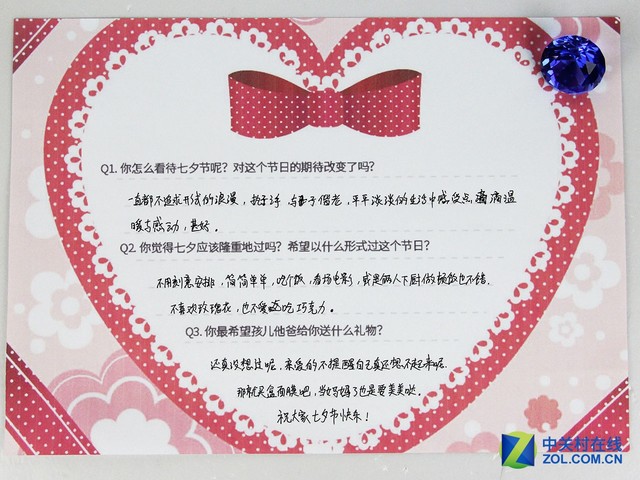 Q1. 你怎么看待七夕节呢？对这个节日的期待改变了吗？
一直都不追求形式的浪漫，执子之手 与子偕老，平平淡淡的生活中感受点滴温
暖与感动，甚好。
Q2. 你觉得七夕应该隆重地过吗？希望以什么形式过这个节日？
不用刻意安排，简简单单，吃个饭，看场电影，或是俩人下厨做顿饭也不错.
不喜欢玫瑰花，也不爱吃巧克力.
Q3. 你最希望孩儿他爸给你送什么礼物？
还真没想过呢，亲爱的不提醒自己真还想不起来呢.
那就买盒面膜吧，当妈妈了也是要美美哒.
祝大家七夕节快乐！
中关村在线
ZOL.COM.CN